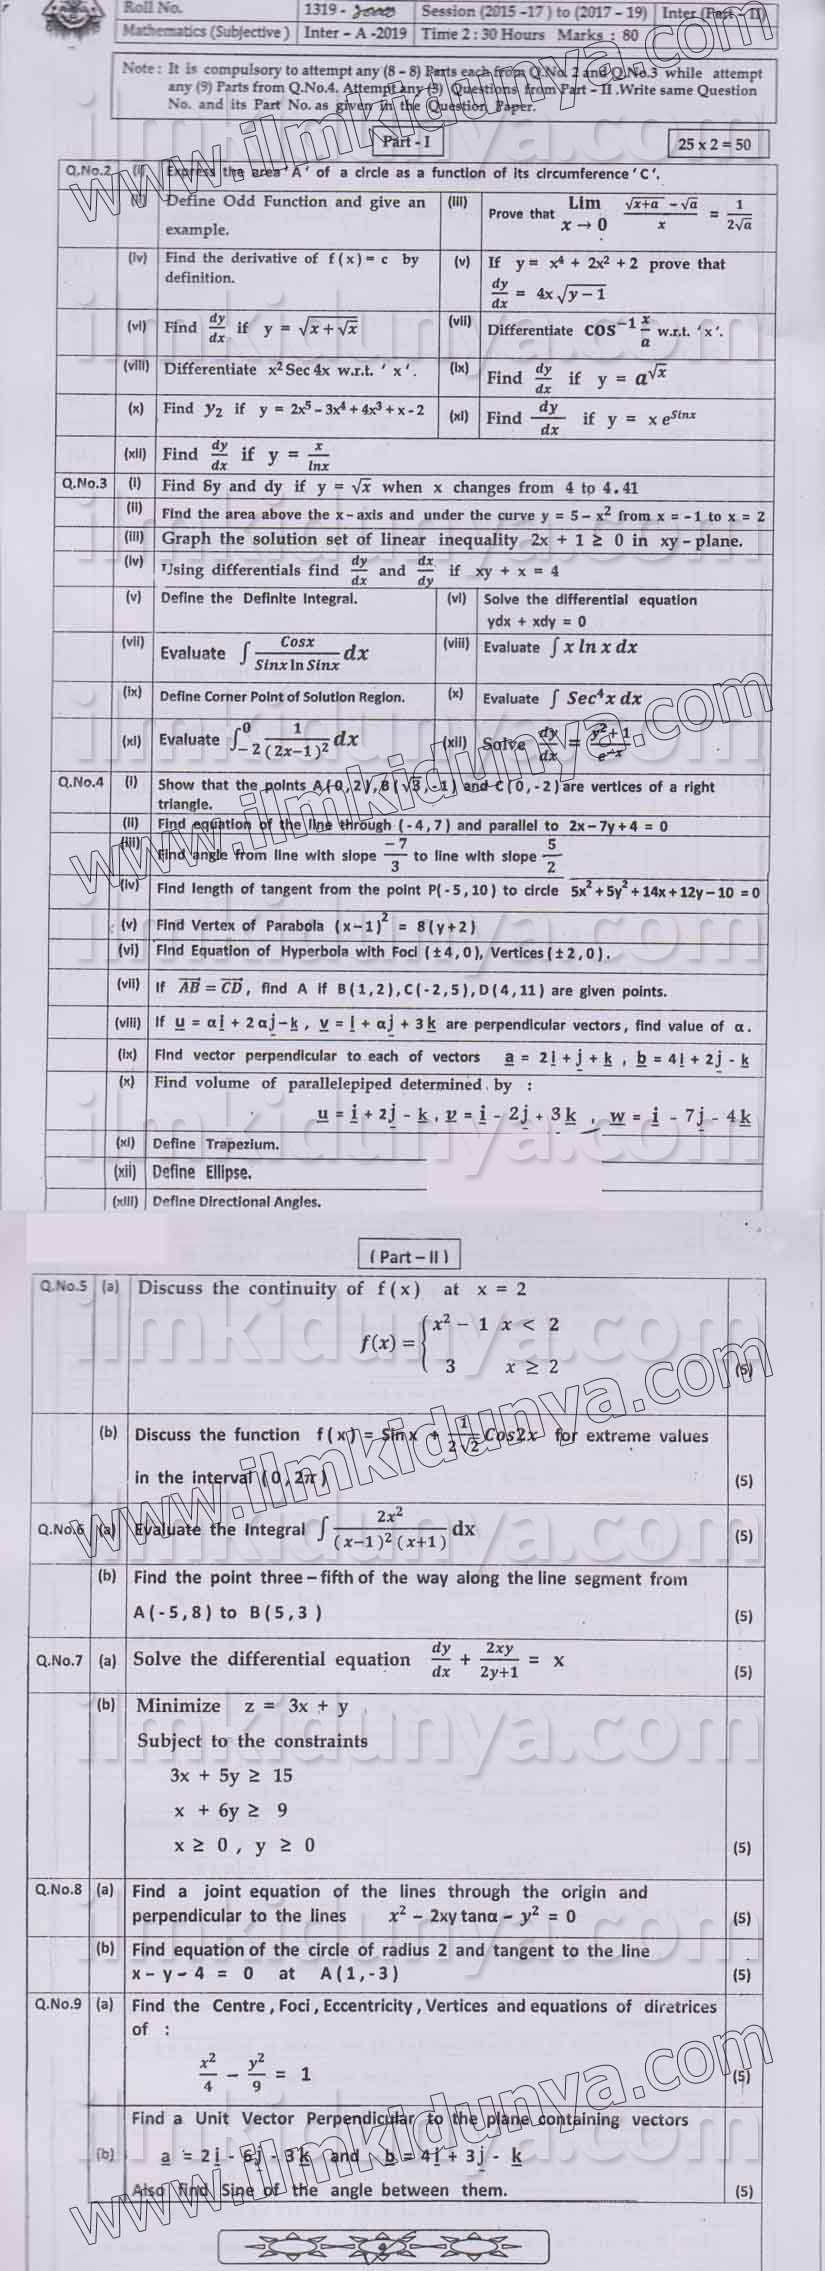 Roll No. 1319 - Session (2015 -17 ) to (2017 - 19) Inter (Part - II)
Mathematics (Subjective ) Inter - A -2019 Time 2 : 30 Hours Marks : 80
Note : It is compulsory to attempt any (8 - 8) Parts each from Q.No. 2 and Q.No.3 while attempt
any (9) Parts from Q.No.4. Attempt any (3) Questions from Part - II .Write same Question
No. and its Part No. as given in the Question Paper.
Part - I
25 x 2 = 50
Q.No.2 (i) Express the area ' A ' of a circle as a function of its circumference ' C '.
(ii) Define Odd Function and give an example.
(iii) Prove that Lim x → 0 (√x+a - √a)/x = 1/(2√a)
(iv) Find the derivative of f(x) = c by definition.
(v) If y = x⁴ + 2x² + 2 prove that dy/dx = 4x √(y-1)
(vi) Find dy/dx if y = √(x + √x)
(vii) Differentiate COS⁻¹ x/a w.r.t. ' x '.
(viii) Differentiate x² Sec 4x w.r.t. ' x '.
(ix) Find dy/dx if y = a^√x
(x) Find y₂ if y = 2x⁵ - 3x⁴ + 4x³ + x - 2
(xi) Find dy/dx if y = x e^Sinx
(xii) Find dy/dx if y = x/lnx
Q.No.3 (i) Find δy and dy if y = √x when x changes from 4 to 4.41
(ii) Find the area above the x-axis and under the curve y = 5 - x² from x = -1 to x = 2
(iii) Graph the solution set of linear inequality 2x + 1 ≥ 0 in xy - plane.
(iv) Using differentials find dy/dx and dx/dy if xy + x = 4
(v) Define the Definite Integral.
(vi) Solve the differential equation ydx + xdy = 0
(vii) Evaluate ∫ Cosx/(Sinx ln Sinx) dx
(viii) Evaluate ∫ x ln x dx
(ix) Define Corner Point of Solution Region.
(x) Evaluate ∫ Sec⁴x dx
(xi) Evaluate ∫₋₂⁰ 1/(2x-1)² dx
(xii) Solve dy/dx = (y²+1)/e⁻ˣ
Q.No.4 (i) Show that the points A(0,2), B(√3,-1) and C(0,-2) are vertices of a right
triangle.
(ii) Find equation of the line through (-4,7) and parallel to 2x-7y+4 = 0
(iii) Find angle from line with slope -7/3 to line with slope 5/2
(iv) Find length of tangent from the point P(-5,10) to circle 5x²+5y²+14x+12y-10 = 0
(v) Find Vertex of Parabola (x-1)² = 8(y+2)
(vi) Find Equation of Hyperbola with Foci (±4,0), Vertices (±2,0).
(vii) If AB = CD, find A if B(1,2), C(-2,5), D(4,11) are given points.
(viii) If u = αi + 2αj - k , v = i + αj + 3k are perpendicular vectors, find value of α.
(ix) Find vector perpendicular to each of vectors a = 2i + j + k , b = 4i + 2j - k
(x) Find volume of parallelepiped determined by :
u = i + 2j - k , v = i - 2j + 3k , w = i - 7j - 4k
(xi) Define Trapezium.
(xii) Define Ellipse.
(xiii) Define Directional Angles.
( Part - II )
Q.No.5 (a) Discuss the continuity of f(x) at x = 2
f(x) = { x² - 1 x < 2
3 x ≥ 2 (5)
(b) Discuss the function f(x) = Sinx + 1/(2√2) Cos2x for extreme values
in the interval (0, 2π) (5)
Q.No.6 (a) Evaluate the Integral ∫ 2x²/((x-1)² (x+1)) dx (5)
(b) Find the point three - fifth of the way along the line segment from
A(-5,8) to B(5,3) (5)
Q.No.7 (a) Solve the differential equation dy/dx + 2xy/(2y+1) = x (5)
(b) Minimize z = 3x + y
Subject to the constraints
3x + 5y ≥ 15
x + 6y ≥ 9
x ≥ 0 , y ≥ 0 (5)
Q.No.8 (a) Find a joint equation of the lines through the origin and
perpendicular to the lines x² - 2xy tanα - y² = 0 (5)
(b) Find equation of the circle of radius 2 and tangent to the line
x - y - 4 = 0 at A(1,-3) (5)
Q.No.9 (a) Find the Centre , Foci , Eccentricity , Vertices and equations of diretrices
of :
x²/4 - y²/9 = 1 (5)
Find a Unit Vector Perpendicular to the plane containing vectors
(b) a = 2i - 6j - 3k and b = 4i + 3j - k
Also find Sine of the angle between them. (5)
www.ilmkidunya.com
www.ilmkidunya.com
www.ilmkidunya.com
www.ilmkidunya.com